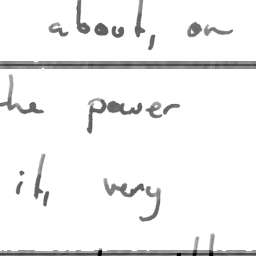 about, on
the power
it, very